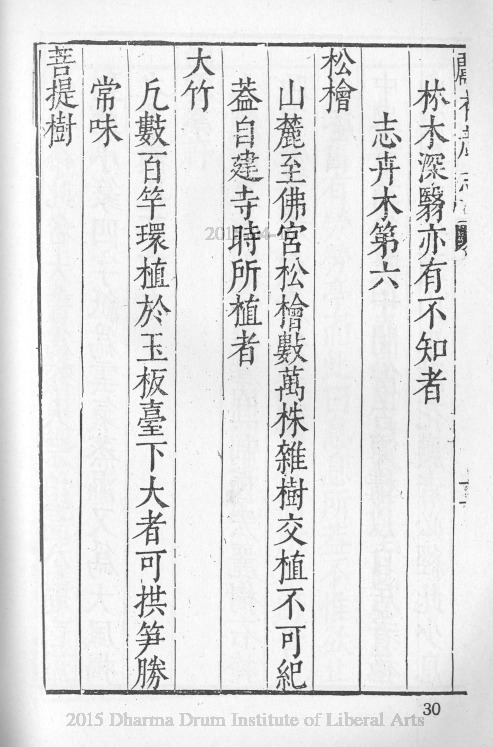 林木深翳亦有不知者
志卉木第六
松檜
山麓至佛宮松檜數萬株雜樹交植不可紀
葢自建寺時所植者
大竹
凢數百竿環植於玉板臺下大者可拱笋勝
常味
菩提樹
30
2015 Dharma Drum Institute of Liberal Arts